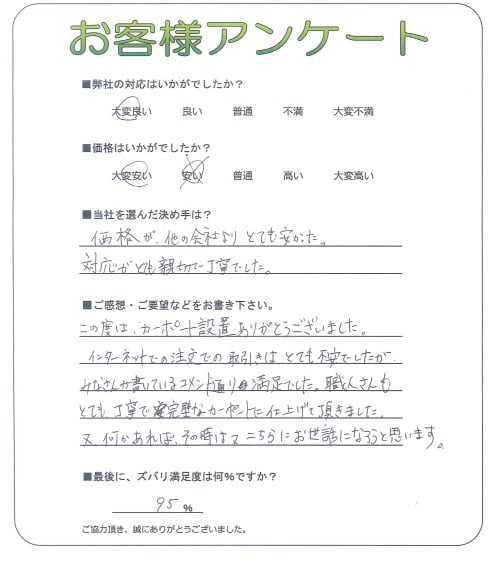 お客様アンケート
■弊社の対応はいかがでしたか？
大変良い 良い 普通 不満 大変不満
■価格はいかがでしたか？
大変安い 安い 普通 高い 大変高い
■当社を選んだ決め手は？
価格が、他の会社より とても安かた。
対応がとても親切で丁寧でした。
■ご感想・ご要望などをお書き下さい。
この度は、カーポート設置ありがとうございました。
インターネットでの注文での取引きは とても不安でしたが、
みなさんが書いているコメント通り満足でした。職人さんも
とても、丁寧で完璧なカーポートに仕上げて頂きました。
又、何かあれば、その時は こちらにお世話になろうと思います。
■最後に、ズバリ満足度は何％ですか？
95 ％
ご協力頂き、誠にありがとうございました。